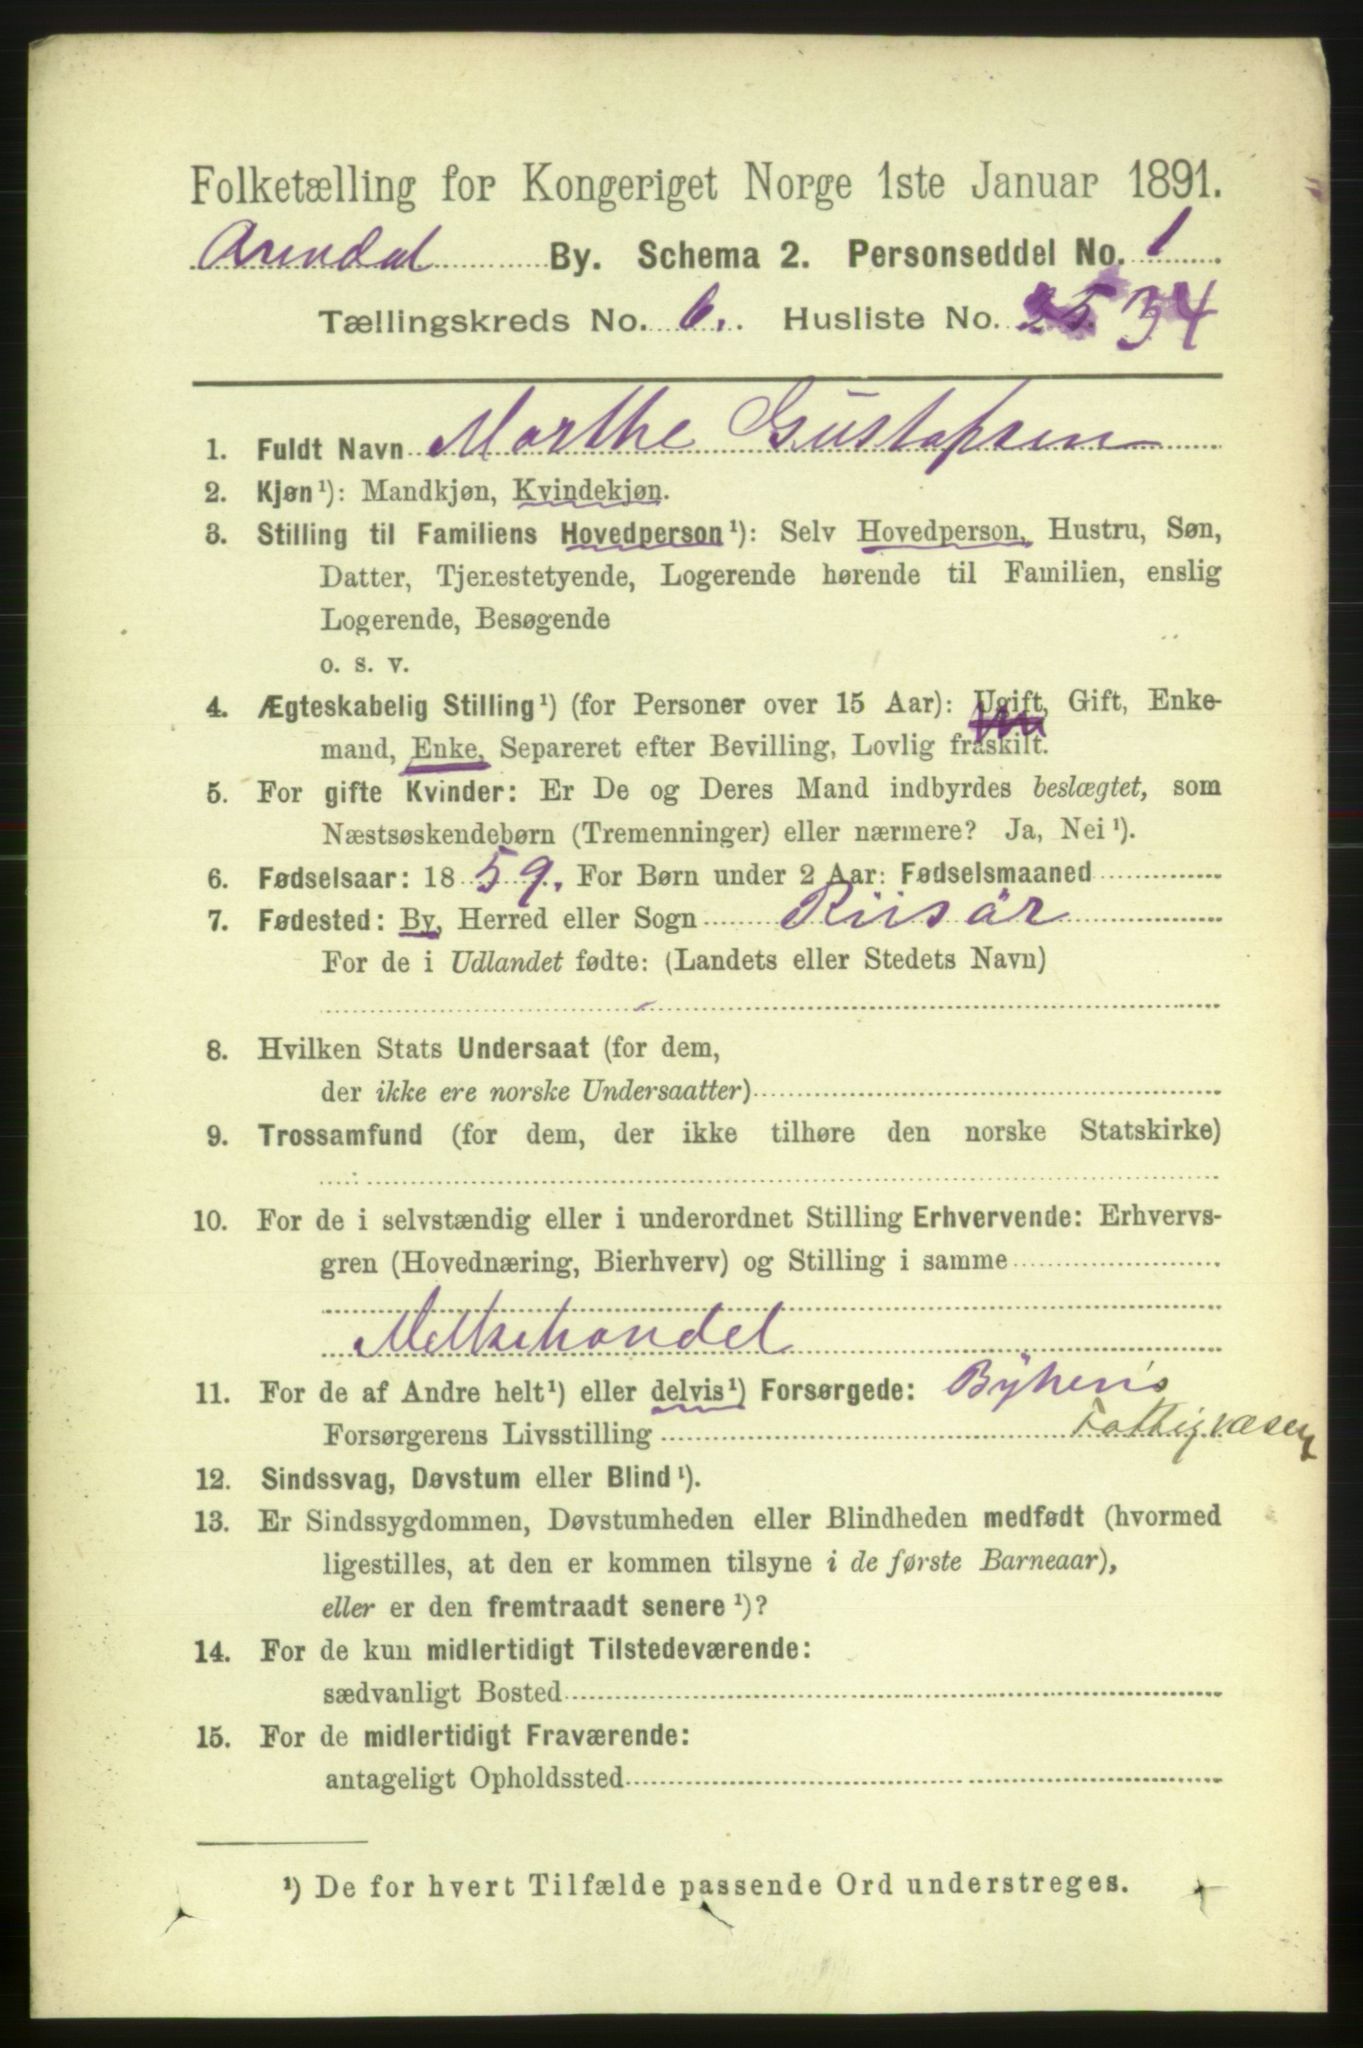 Folketælling for Kongeriget Norge 1ste Januar 1891.
Arendal By. Schema 2. Personseddel No. 1
Tællingskreds No. 6. Husliste No. 25. 34
1. Fuldt Navn Marthe Gustafsen
2. Kjøn¹): Mandkjøn, Kvindekjøn.
3. Stilling til Familiens Hovedperson¹): Selv Hovedperson, Hustru, Søn,
Datter, Tjenestetyende, Logerende hørende til Familien, enslig
Logerende, Besøgende
o. s. v.
4. Ægteskabelig Stilling¹) (for Personer over 15 Aar): Ugift, Gift, Enke-
mand, Enke, Separeret efter Bevilling, Lovlig fraskilt.
5. For gifte Kvinder: Er De og Deres Mand indbyrdes beslægtet, som
Næstsøskendebørn (Tremenninger) eller nærmere? Ja, Nei¹).
6. Fødselsaar: 1859. For Børn under 2 Aar: Fødselsmaaned
7. Fødested: By, Herred eller Sogn Riisör
For de i Udlandet fødte: (Landets eller Stedets Navn)
8. Hvilken Stats Undersaat (for dem,
der ikke ere norske Undersaatter)
9. Trossamfund (for dem, der ikke tilhøre den norske Statskirke)
10. For de i selvstændig eller i underordnet Stilling Erhvervende: Erhvervs-
gren (Hovednæring, Bierhverv) og Stilling i samme
Melkehandel
11. For de af Andre helt¹) eller delvis¹) Forsørgede: Byhens
Forsørgerens Livsstilling Fattigvæsen
12. Sindssvag, Døvstum eller Blind¹).
13. Er Sindssygdommen, Døvstumheden eller Blindheden medfødt (hvormed
ligestilles, at den er kommen tilsyne i de første Barneaar),
eller er den fremtraadt senere¹)?
14. For de kun midlertidigt Tilstedeværende:
sædvanligt Bosted
15. For de midlertidigt Fraværende:
antageligt Opholdssted
¹) De for hvert Tilfælde passende Ord understreges.